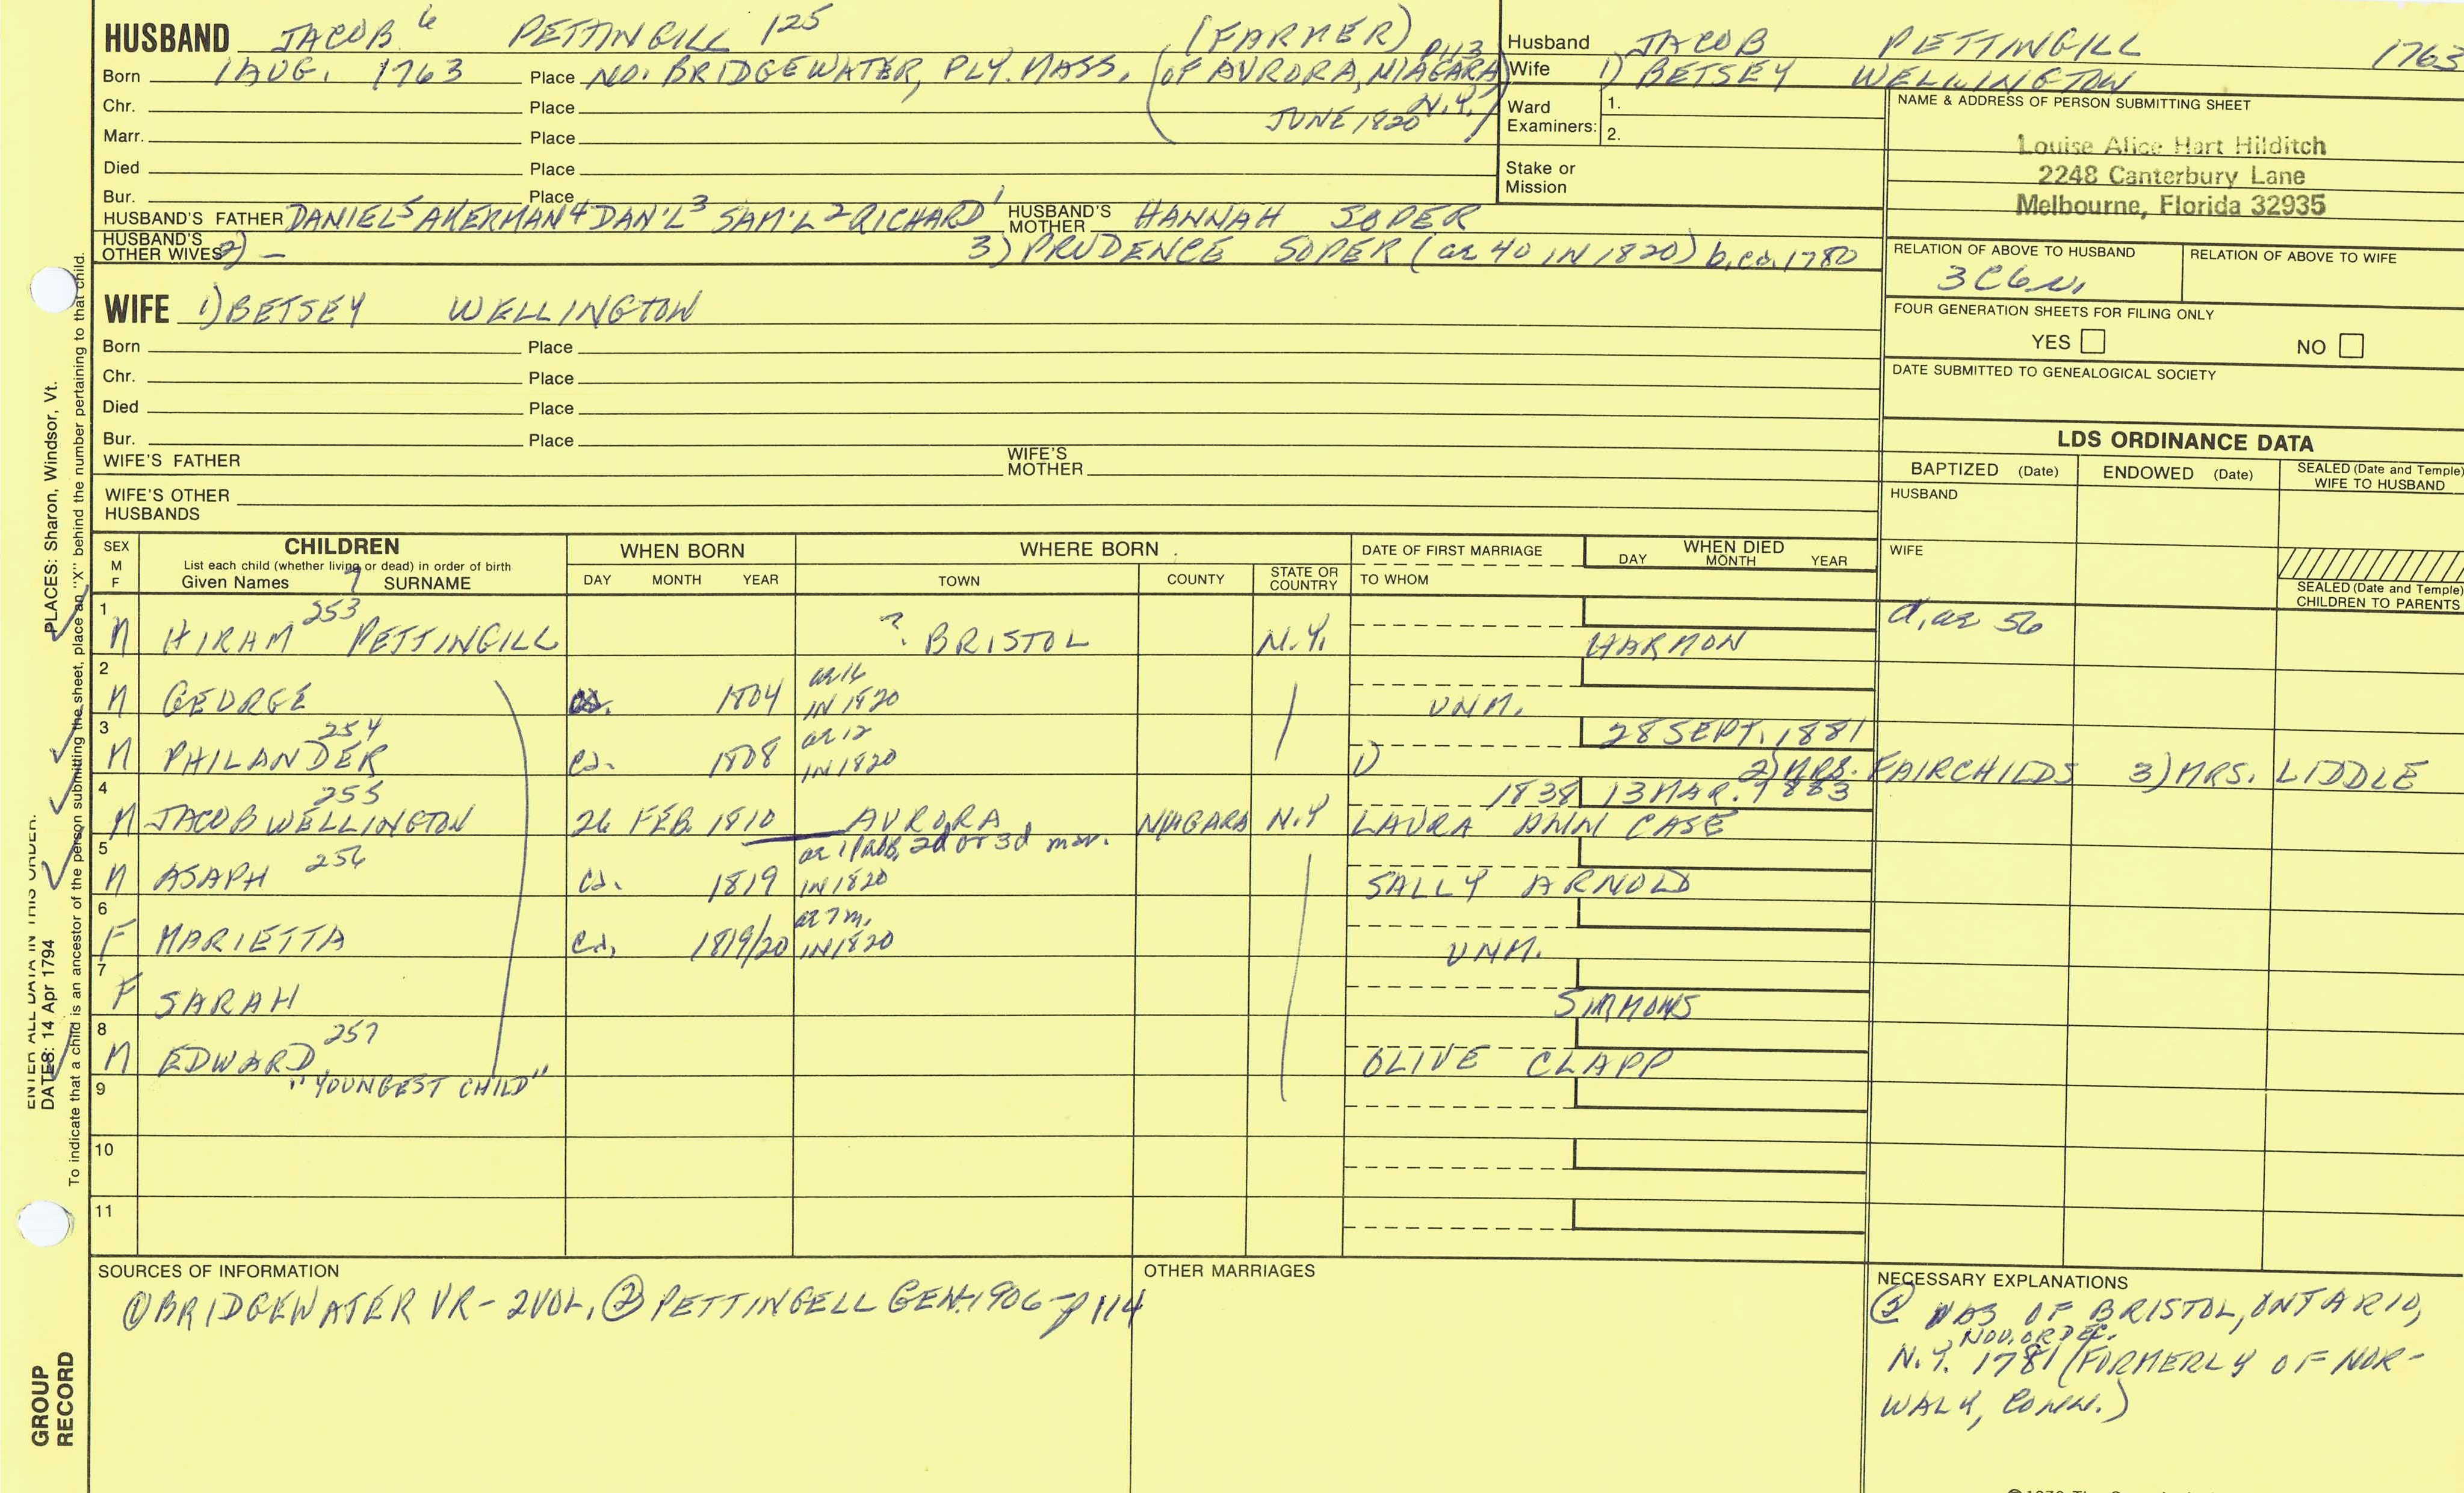 HUSBAND JACOB 6 PETTINGILL 125 (FARMER) P113
Born 1 AUG. 1763 Place NO. BRIDGEWATER, PLY. MASS. (OF AURORA, NIAGARA N.Y.)
Chr. Place JUNE 1820
Marr. Place
Died Place
Bur. Place
HUSBAND'S FATHER DANIEL 5 AKERMAN 4 DAN'L 3 SAM'L 2 RICHARD 1 HUSBAND'S MOTHER HANNAH SOPER
HUSBAND'S OTHER WIVES 2) — 3) PRUDENCE SOPER (ae 40 IN 1820) b. ca. 1780
WIFE 1) BETSEY WELLINGTON
Born Place
Chr. Place
Died Place
Bur. Place
WIFE'S FATHER WIFE'S MOTHER
WIFE'S OTHER HUSBANDS
Husband JACOB PETTINGILL 1763
Wife 1) BETSEY WELLINGTON
Ward Examiners: 1.
2.
Stake or Mission
NAME & ADDRESS OF PERSON SUBMITTING SHEET
Louise Alice Hart Hilditch
2248 Canterbury Lane
Melbourne, Florida 32935
RELATION OF ABOVE TO HUSBAND RELATION OF ABOVE TO WIFE
3C6
FOUR GENERATION SHEETS FOR FILING ONLY
YES NO
DATE SUBMITTED TO GENEALOGICAL SOCIETY
LDS ORDINANCE DATA
BAPTIZED (Date) ENDOWED (Date) SEALED (Date and Temple) WIFE TO HUSBAND
HUSBAND
WIFE
SEALED (Date and Temple) CHILDREN TO PARENTS
SEX M F
CHILDREN
List each child (whether living or dead) in order of birth
Given Names 7 SURNAME
WHEN BORN
DAY MONTH YEAR
WHERE BORN
TOWN COUNTY STATE OR COUNTRY
DATE OF FIRST MARRIAGE
TO WHOM
WHEN DIED
DAY MONTH YEAR
1 M HIRAM 253 PETTINGILL ? BRISTOL N.Y. HARMON d. ae 56
2 M GEORGE ca. 1804 ae 16 IN 1820 UNM.
3 M PHILANDER 254 ca. 1808 ae 12 IN 1820 28 SEPT. 1881 1) 2) MRS. FAIRCHILDS 3) MRS. LIDDLE
4 M JACOB WELLINGTON 255 26 FEB. 1810 AURORA NIAGARA N.Y 1838 13 MAR. 1883 LAURA ANN CASE
5 M ASAPH 256 ca. 1819 ae 1 PROB. 2d or 3d mar. IN 1820 SALLY ARNOLD
6 F MARIETTA ca. 1819/20 ae 7 m. IN 1820 UNM.
7 F SARAH SIMMONS
8 M EDWARD 257 OLIVE CLAPP
9 "YOUNGEST CHILD"
10
11
SOURCES OF INFORMATION
① BRIDGEWATER VR - 2 VOL. ② PETTINGELL GEN. 1906 - p 114
OTHER MARRIAGES
NECESSARY EXPLANATIONS
WAS OF BRISTOL, ONTARIO,
N.Y. NOV. OR DEC. 1781 (FORMERLY OF NOR-
WALK, CONN.)
PLACES: Sharon, Windsor, Vt.
To indicate that a child is an ancestor of the person submitting the sheet, place an "X" behind the number pertaining to that child.
ENTER ALL DATA IN THIS ORDER:
DATES: 14 Apr 1794
GROUP
RECORD